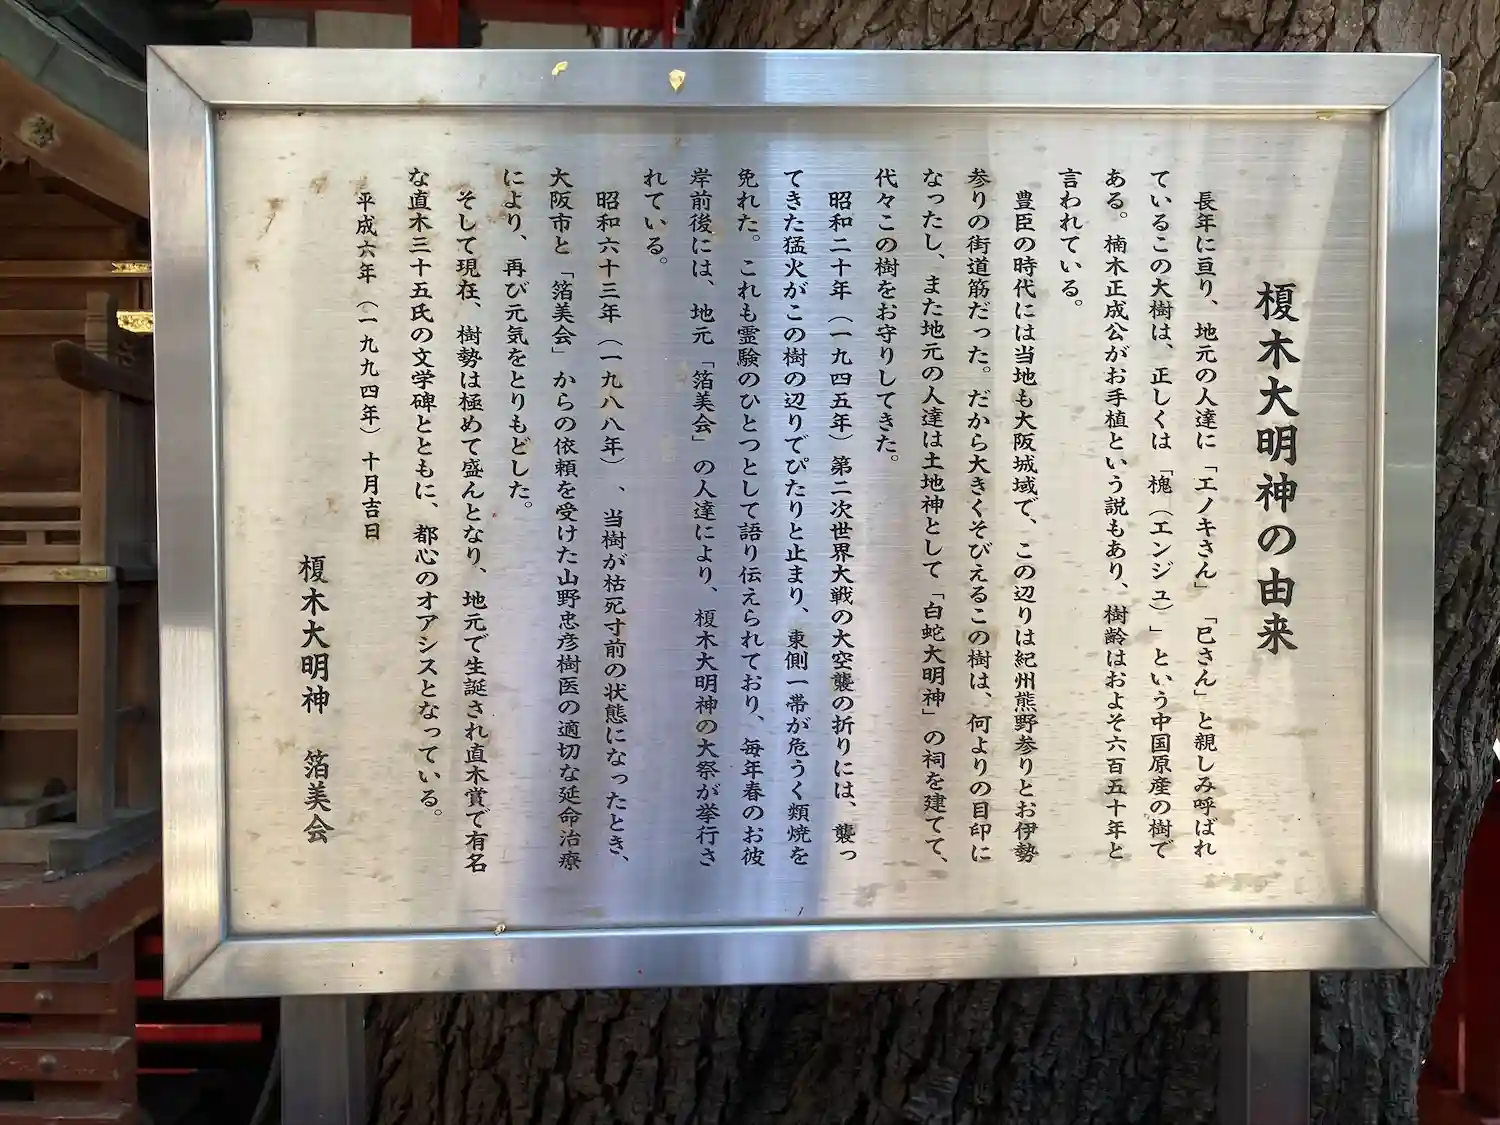 榎木大明神の由来
長年に亘り、地元の人達に「エノキさん」「巳さん」と親しみ呼ばれ
ているこの大樹は、正しくは「槐（エンジュ）」という中国原産の樹で
ある。楠木正成公がお手植という説もあり、樹齢はおよそ六百五十年と
言われている。
豊臣の時代には当地も大阪城域で、この辺りは紀州熊野参りとお伊勢
参りの街道筋だった。だから大きくそびえるこの樹は、何よりの目印に
なったし、また地元の人達は土地神として「白蛇大明神」の祠を建てて、
代々この樹をお守りしてきた。
昭和二十年（一九四五年）第二次世界大戦の大空襲の折りには、襲っ
てきた猛火がこの樹の辺りでぴたりと止まり、東側一帯が危うく類焼を
免れた。これも霊験のひとつとして語り伝えられており、毎年春のお彼
岸前後には、地元「箔美会」の人達により、榎木大明神の大祭が挙行さ
れている。
昭和六十三年（一九八八年）、当樹が枯死寸前の状態になったとき、
大阪市と「箔美会」からの依頼を受けた山野忠彦樹医の適切な延命治療
により、再び元気をとりもどした。
そして現在、樹勢は極めて盛んとなり、地元で生誕され直木賞で有名
な直木三十五氏の文学碑とともに、都心のオアシスとなっている。
平成六年（一九九四年）十月吉日
榎木大明神　箔美会